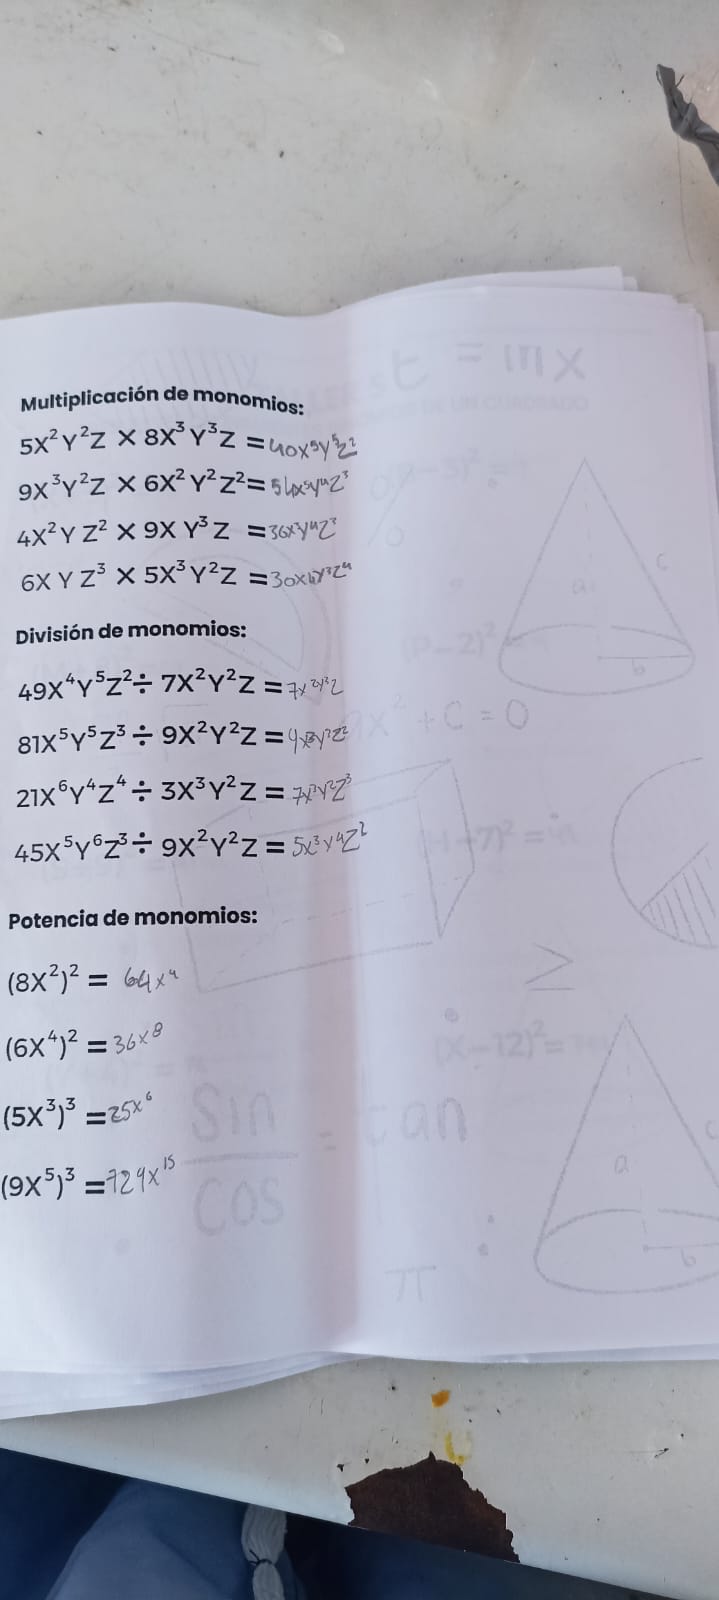 Multiplicación de monomios:
5X²Y²Z × 8X³Y³Z = 40x⁵y⁵z²
9X³Y²Z × 6X²Y²Z² = 54x⁵y⁴z³
4X²Y Z² × 9X Y³Z = 36x³y⁴z³
6X Y Z³ × 5X³Y²Z = 30x⁴y³z⁴
División de monomios:
49X⁴Y⁵Z² ÷ 7X²Y²Z = 7x²y³z
81X⁵Y⁵Z³ ÷ 9X²Y²Z =
21X⁶Y⁴Z⁴ ÷ 3X³Y²Z = 7x³y²z³
45X⁵Y⁶Z³ ÷ 9X²Y²Z = 5x³y⁴z²
Potencia de monomios:
(8X²)² = 64x⁴
(6X⁴)² = 36x⁸
(5X³)³ = 25x⁶
(9X⁵)³ = 729x¹⁵
t = mx
X² + C = 0
(P-2)²
(X-12)²=
≥
Sin
COS
= tan
π
a
c
b
a
b